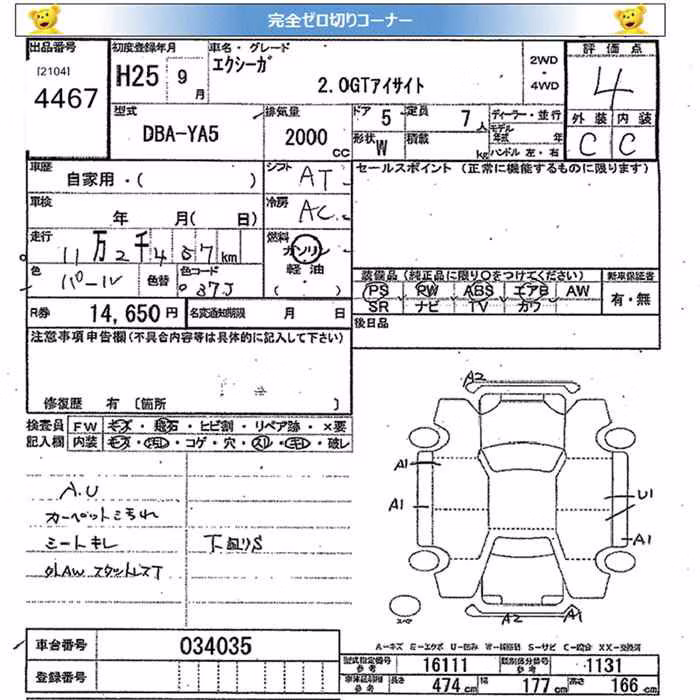 完全ゼロ切りコーナー
出品番号
[2104]
4467
初度登録年月
H25 9月
車名・グレード
エクシーガ
2.0GTアイサイト
2WD
・
4WD
評価点
4
外装 内装
C C
型式
DBA-YA5
排気量
2000
CC
ドア 5
定員 7人
形状 W
積載 kg
ディーラー・並行
モデル年式 年
ハンドル 左・右
車歴
自家用・( )
シフト AT
車検
年 月( 日)
冷房 AC
走行
11万2千487km
燃料
ガソリン
軽油
( )
色 パール
色替
色コード
37J
R券 14,650円
名変通知期限 月 日
セールスポイント (正常に機能するものに限ります)
装備品 (純正品に限り○をつけてください)
PS RW ABS エアB AW
SR ナビ TV カワ
新車保証書
有・無
後日品
注意事項申告欄(不具合内容等は具体的に記入して下さい)
修復歴 有 〔箇所 〕
検査員
記入欄
FW キズ・飛石・ヒビ割・リペア跡・×要
内装 キズ・汚れ・コゲ・穴・スリ・キレ・破レ
A.U
カーペットこちれ
シートキレ
下回りS
外AW スタットレスT
A2
A1
A1
U1
A1
A2
A1
スペア
A-キズ E-エクボ U-凹み W-補修跡 S-サビ C-腐食 XX-交換済
車台番号 034035
登録番号
型式指定番号 参考 16111
類別区分番号 参考 1131
車体寸明細 参考 長さ 474cm 幅 177cm 高さ 166cm